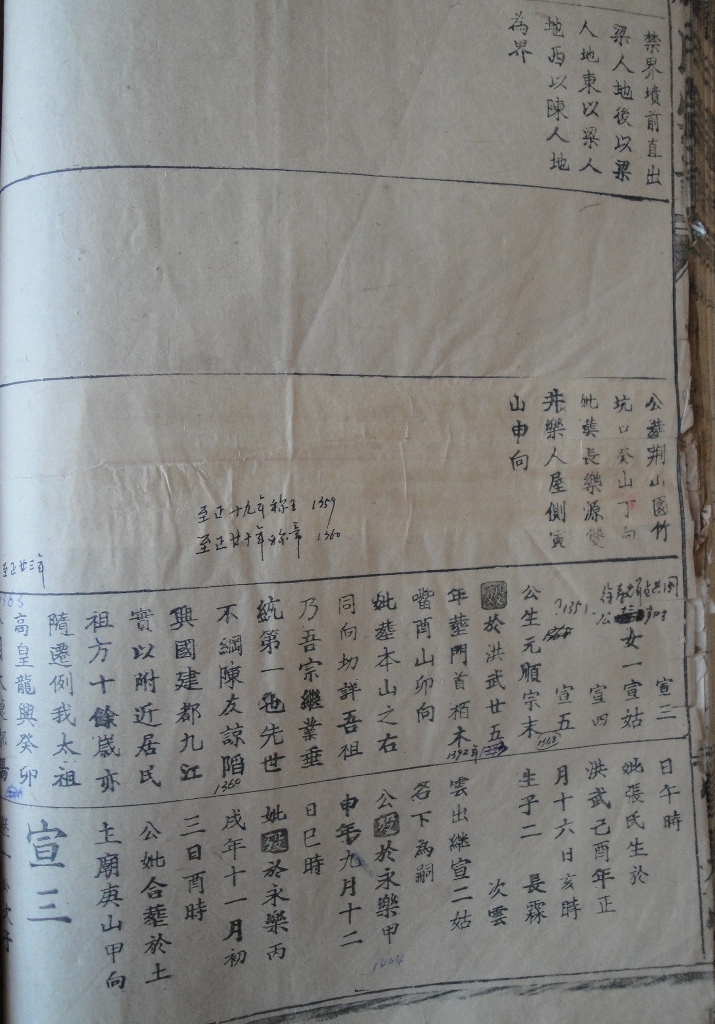 禁界墳前直出
梁人地後以梁
人地東以梁人
地西以陳人地
為界
公葬荆山園竹
坑口癸山丁向
妣葬長樂源雙
井樂人屋側寅
山申向
至正十九年称王 1359
至正廿十年称帝 1360
至正廿三年
宣三
女一宣姑
宣四
宣五
公生元順宗末
1368
殁於洪武廿五
1392年
年葬門首栢木
嘴酉山卯向
妣葬本山之右
同向切詳吾祖
乃吾宗繼業垂
統第一也先世
不綱陳友諒陷
1360
興國建都九江
實以附近居民
祖方十餘歲亦
隨遷例我太祖
高皇龍興癸卯
日午時
妣張氏生於
洪武己酉年正
月十六日亥時
生子二 長霖
次雲
雲出継宣二姑
名下為嗣
公殁於永樂甲
1404
申年九月十二
日巳時
妣殁於永樂丙
戌年十一月初
三日酉時
公妣合葬於土
主廟庚山甲向
宣三